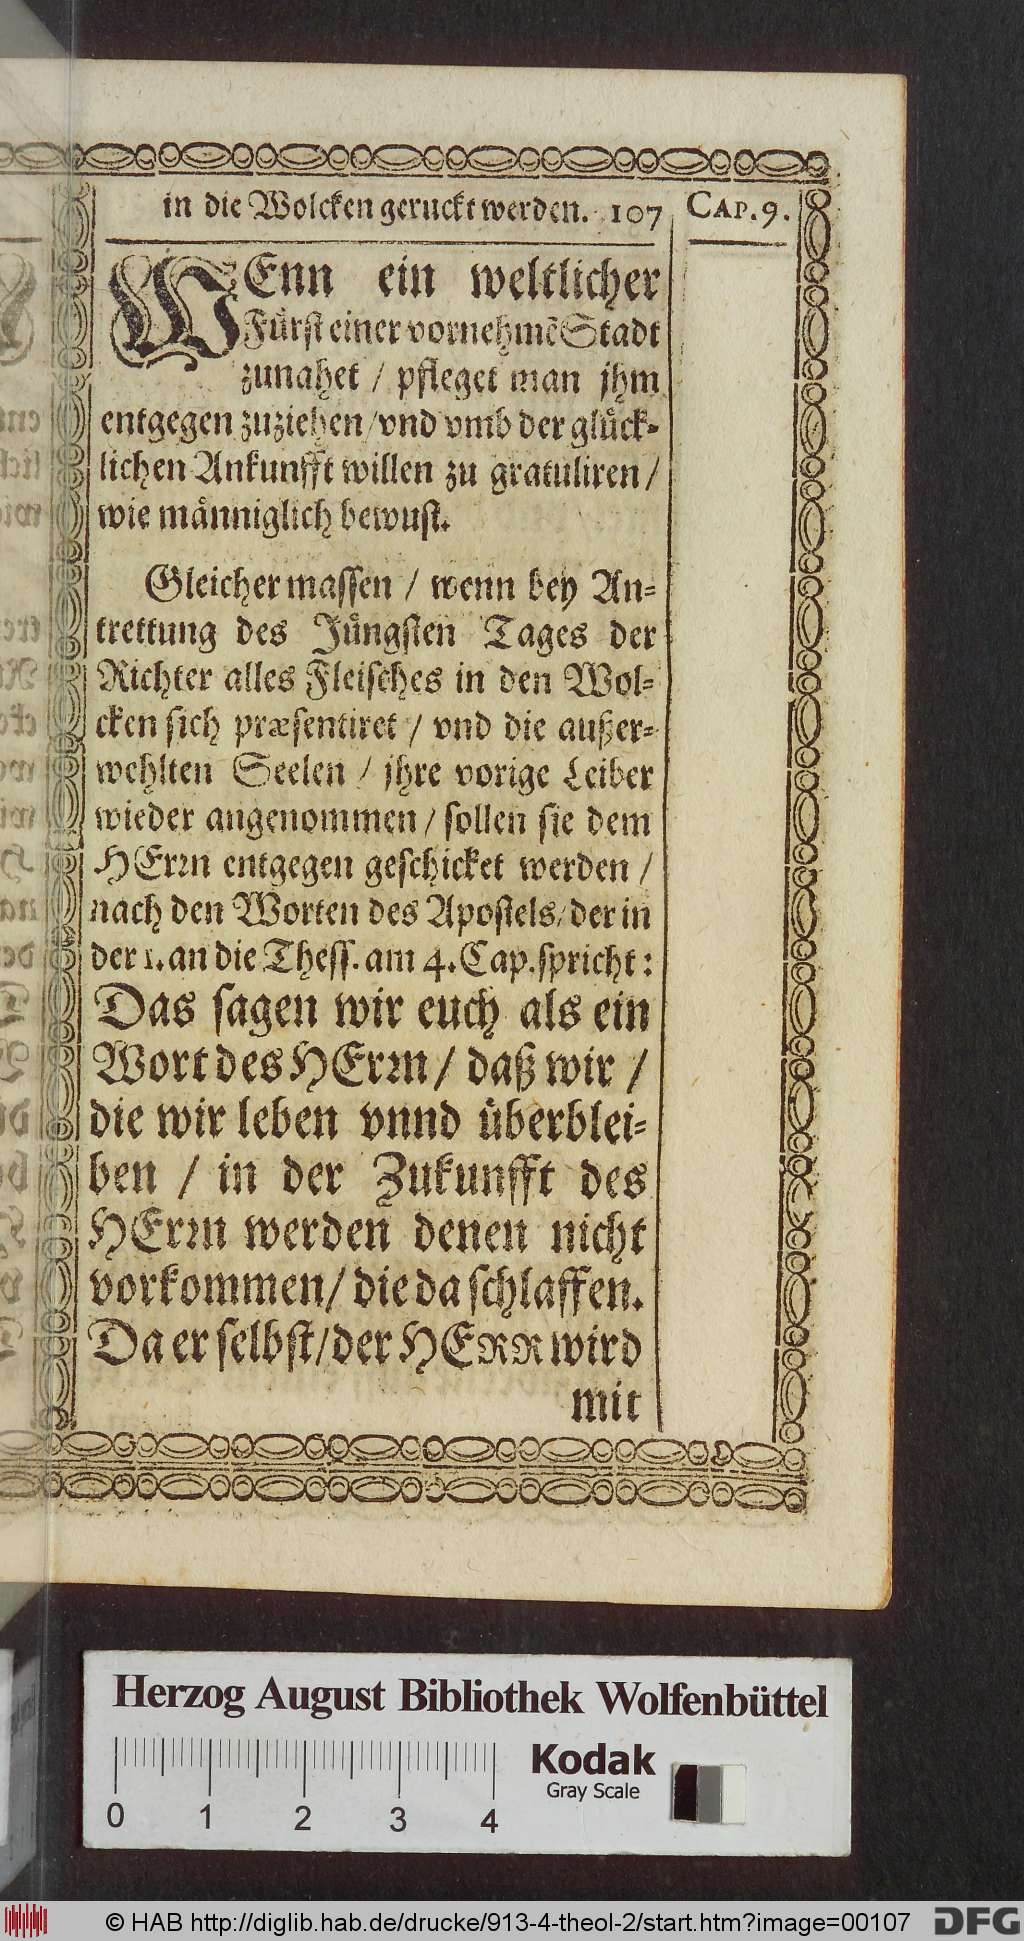 in die Wolcken geruckt werden. 107
CAP. 9.
WEnn ein weltlicher
Fürst einer vornehmẽ Stadt
zunahet / pfleget man jhm
entgegen zuziehen / vnd vmb der glück-
lichen Ankunfft willen zu gratuliren /
wie männiglich bewust.
Gleicher massen / wenn bey An-
trettung des Jüngsten Tages der
Richter alles Fleisches in den Wol-
cken sich præsentiret / vnd die außer-
wehlten Seelen / jhre vorige Leiber
wieder angenommen / sollen sie dem
HErrn entgegen geschicket werden /
nach den Worten des Apostels / der in
der 1. an die Thess. am 4. Cap. spricht:
Das sagen wir euch als ein
Wort des HErrn / daß wir /
die wir leben vnnd überblei-
ben / in der Zukunfft des
HErrn werden denen nicht
vorkommen / die da schlaffen.
Da er selbst / der HERR wird
mit
Herzog August Bibliothek Wolfenbüttel
Kodak
Gray Scale
0 1 2 3 4
© HAB http://diglib.hab.de/drucke/913-4-theol-2/start.htm?image=00107
DFG